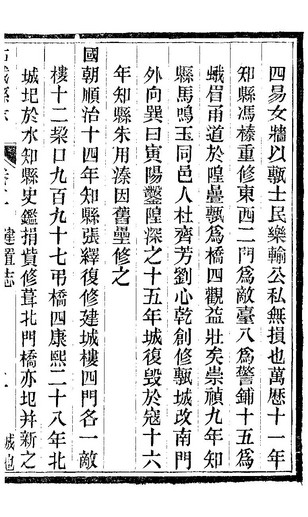 四易女牆以甎士民樂輸公私無損也萬曆十一年
知縣馮榛重修東西二門爲敵臺八爲警鋪十五爲
蛾眉甬道於隍壘甎爲橋四觀益壯矣崇禎九年知
縣馬鳴玉同邑人杜齊芳劉心乾創修甎城改南門
外向巽曰寅陽鑿隍深之十五年城復毀於寇十六
年知縣朱用溱因舊壘修之
國朝順治十四年知縣張繹復修建城樓四門各一敵
樓十二垜口九百九十七弔橋四康熙二十八年北
城圯於水知縣史鑑捐貲修葺北門橋亦圯并新之
建置志
城池